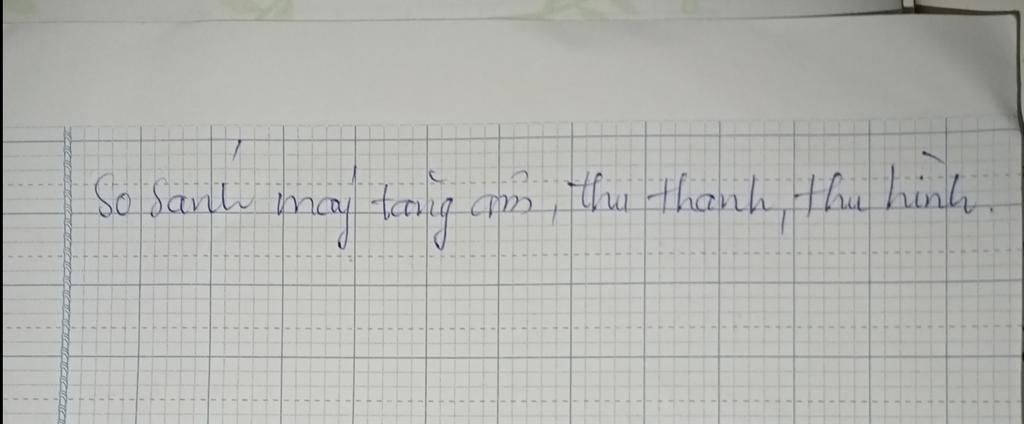 So sánh máy tăng âm, thu thanh, thu hình.